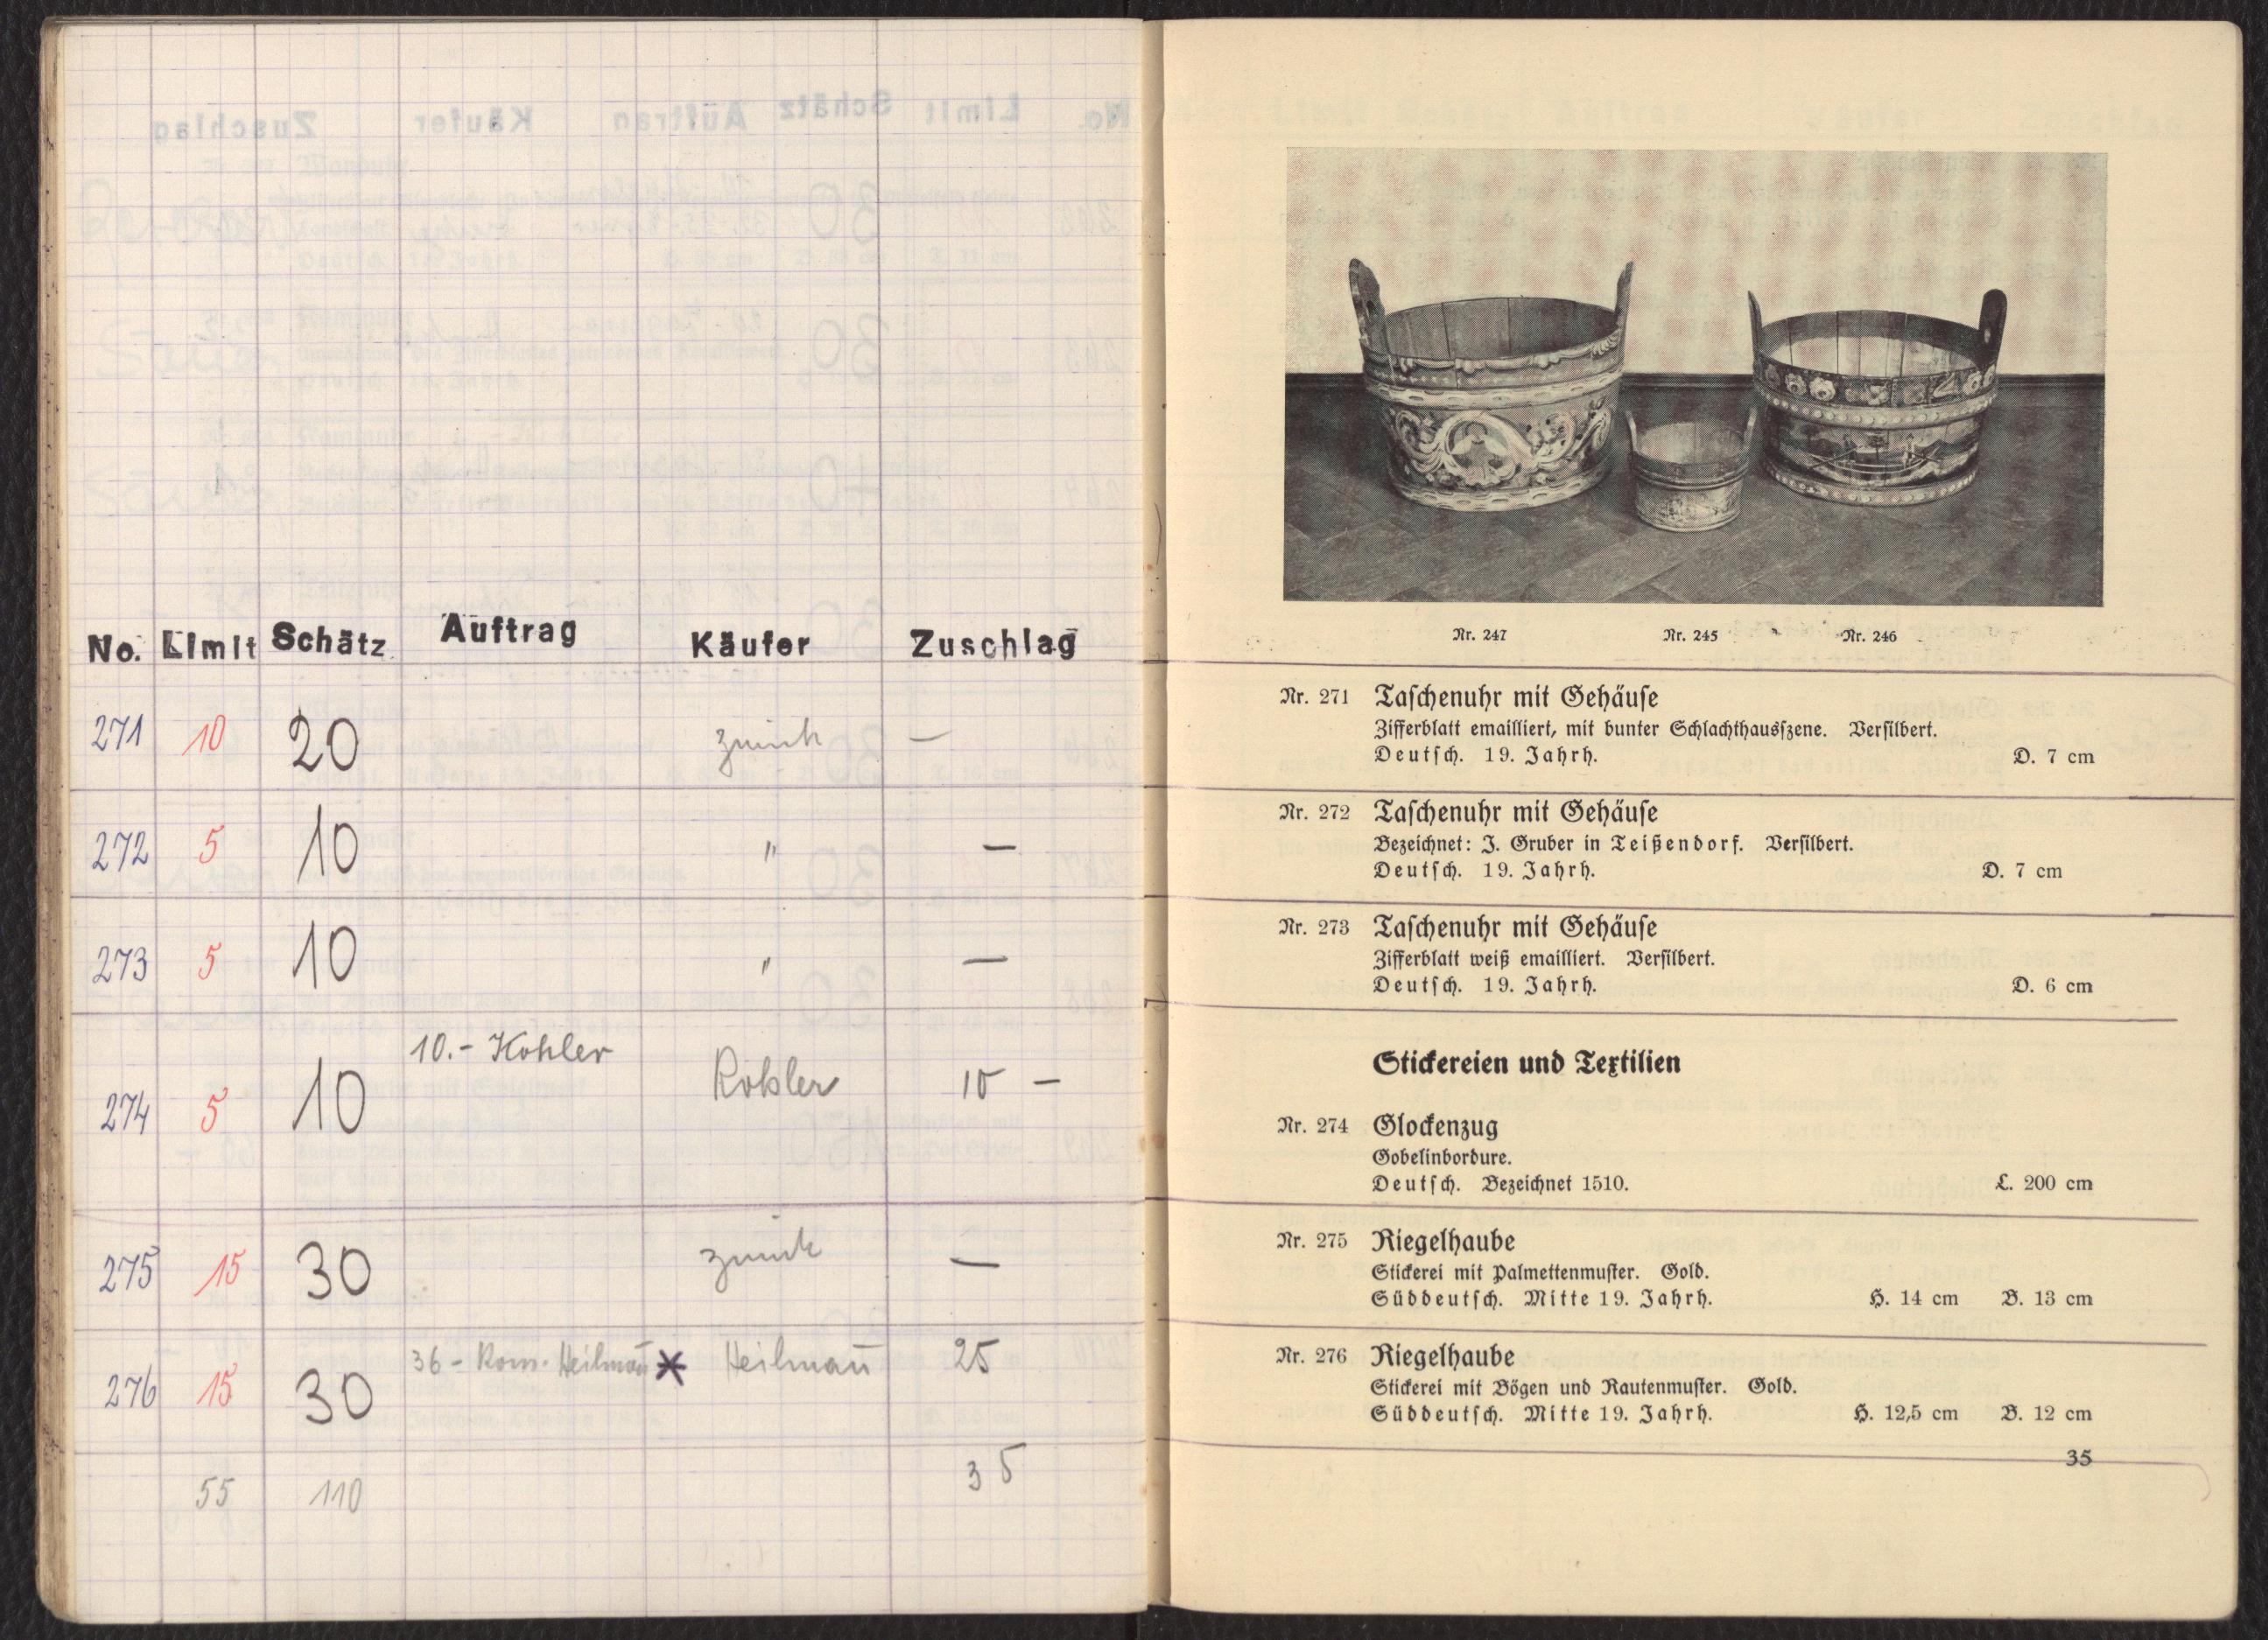 No. Limit Schätz Auftrag Käufer Zuschlag
271 10 20 zurück —
272 5 10 " —
273 5 10 " —
274 5 10 10.- Kohler Kohler 10 —
275 15 30 zurück —
276 15 30 36 - Kom. Heilmañ * Heilmañ 25
55 110 35
Nr. 247 Nr. 245 Nr. 246
Nr. 271 Taſchenuhr mit Gehäuſe
Zifferblatt emailliert, mit bunter Schlachthausſzene. Verſilbert.
Deutſch. 19. Jahrh. D. 7 cm
Nr. 272 Taſchenuhr mit Gehäuſe
Bezeichnet: J. Gruber in Teißendorf. Verſilbert.
Deutſch. 19. Jahrh. D. 7 cm
Nr. 273 Taſchenuhr mit Gehäuſe
Zifferblatt weiß emailliert. Verſilbert.
Deutſch. 19. Jahrh. D. 6 cm
Stickereien und Textilien
Nr. 274 Glockenzug
Gobelinbordure.
Deutſch. Bezeichnet 1510. L. 200 cm
Nr. 275 Riegelhaube
Stickerei mit Palmettenmuſter. Gold.
Süddeutſch. Mitte 19. Jahrh. H. 14 cm B. 13 cm
Nr. 276 Riegelhaube
Stickerei mit Bögen und Rautenmuſter. Gold.
Süddeutſch. Mitte 19. Jahrh. H. 12,5 cm B. 12 cm
35